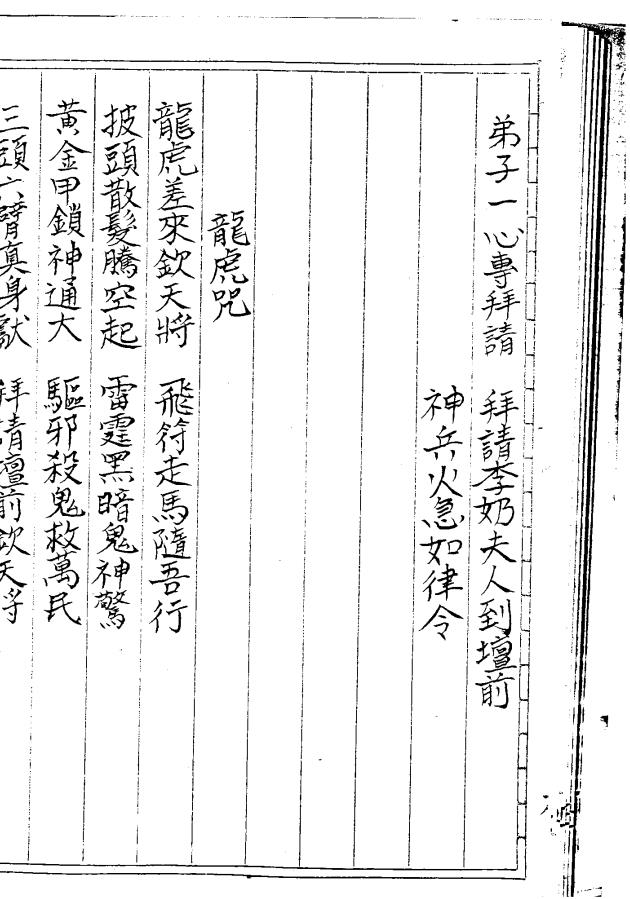 弟子一心專拜請　拜請李奶夫人到壇前
神兵火急如律令
龍虎咒
龍虎差來欽天將　飛符走馬隨吾行
披頭散髮騰空起　雷霆黑暗鬼神驚
黃金甲鎖神通大　驅邪殺鬼救萬民
三頭六臂真身獻　拜請壇前欽天將